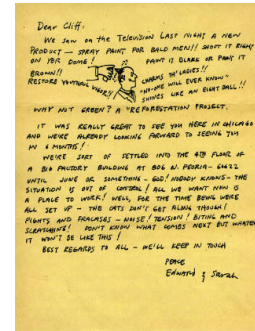 Dear Cliff:
WE SAW ON THE TELEVISION LAST NIGHT A NEW
PRODUCT — SPRAY PAINT FOR BALD MEN!! SHOOT IT RIGHT
ON YER DOME! PAINT IT BLACK OR PAINT IT
BROWN!! CHARMS TH' LADIES!!
RESTORE YOUTHFUL VIGOR!! "NO-ONE WILL EVER KNOW"
SHINES LIKE AN EIGHT BALL!!
WHY NOT GREEN? A "REFORESTATION PROJECT.
IT WAS REALLY GREAT TO SEE YOU HERE IN CHICAGO
AND WE'RE ALREADY LOOKING FORWARD TO SEEING YOU
IN 6 MONTHS!
WE'RE SORT OF SETTLED INTO THE 4TH FLOOR OF
A BIG FACTORY BUILDING AT 806 N. PEORIA - 60622
UNTIL JUNE OR SOMETHING - GOD! NOBODY KNOWS - THE
SITUATION IS OUT OF CONTROL! ALL WE WANT NOW IS
A PLACE TO WORK! WELL, FOR THE TIME BEING WE'RE
ALL SET UP - THE CATS DON'T GET ALONG THOUGH!
FIGHTS AND FRACASES - NOISE! TENSION! BITING AND
SCRATCHING! DON'T KNOW WHAT COMES NEXT BUT WHATEVER
IT WON'T BE LIKE THIS!
BEST REGARDS TO ALL - WE'LL KEEP IN TOUCH
PEACE
EDWARD & SARAH